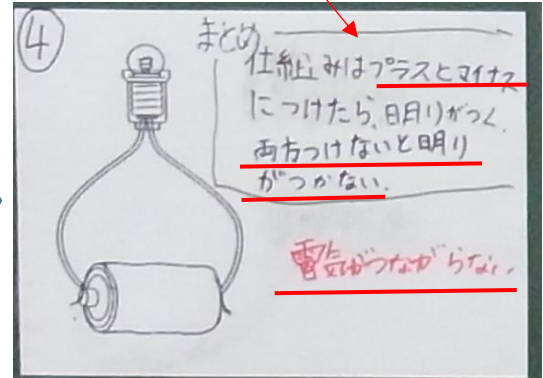 ④
まとめ
仕組みはプラスとマイナス
につけたら、明りがつく。
両方つけないと明り
がつかない。
電気がつながらない。